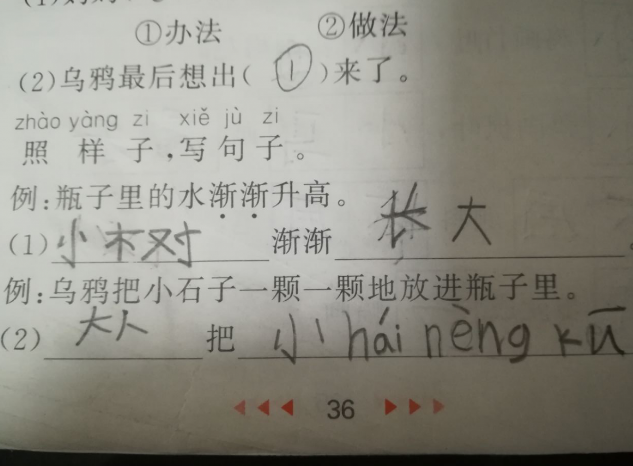 ①办法 ②做法
(2)乌鸦最后想出( ① )来了。
zhào yàng zi xiě jù zi
照样子,写句子。
例:瓶子里的水渐渐升高。
(1)小木对渐渐长大
例:乌鸦把小石子一颗一颗地放进瓶子里。
(2)大人把小hái nèng kū
36